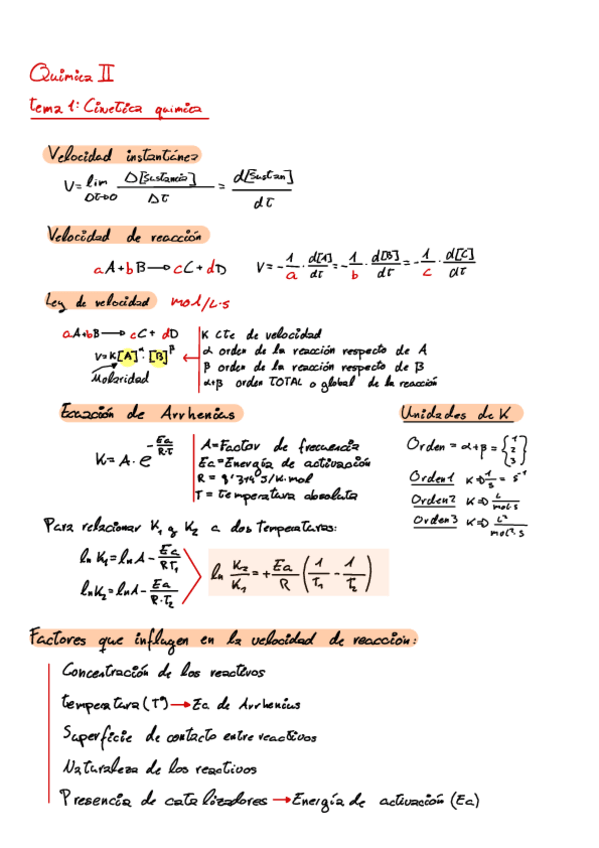 Química II
tema 1: Cinetica quimica
Velocidad instantánea
V = lim Δt→0 Δ[sustancia]/Δt = d[sustan]/dt
Velocidad de reacción
aA + bB → cC + dD V = -1/a · d[A]/dt = -1/b · d[B]/dt = -1/c · d[C]/dt
Ley de velocidad mol/L·s
aA + bB → cC + dD
V = K[A]^α · [B]^β
Molaridad
K cte de velocidad
α orden de la reacción respecto de A
β orden de la reacción respecto de B
α+β orden TOTAL o global de la reacción
Ecuación de Arrhenius
K = A · e^(-Ea/R·T)
A = Factor de frecuencia
Ea = Energía de activación
R = 8'314 J/K·mol
T = temperatura absoluta
Unidades de K
Orden = α+β = {1 2 3}
Orden 1 K ⇒ 1/s = s^-1
Orden 2 K ⇒ L/mol·s
Orden 3 K ⇒ L²/mol²·s
Para relacionar K1 y K2 a dos temperaturas:
ln K1 = ln A - Ea/RT1
ln K2 = ln A - Ea/R·T2
ln K2/K1 = + Ea/R (1/T1 - 1/T2)
Factores que influyen en la velocidad de reacción:
Concentración de los reactivos
temperatura (Tº) → Ea de Arrhenius
Superficie de contacto entre reactivos
Naturaleza de los reactivos
Presencia de catalizadores → Energía de activación (Ea)